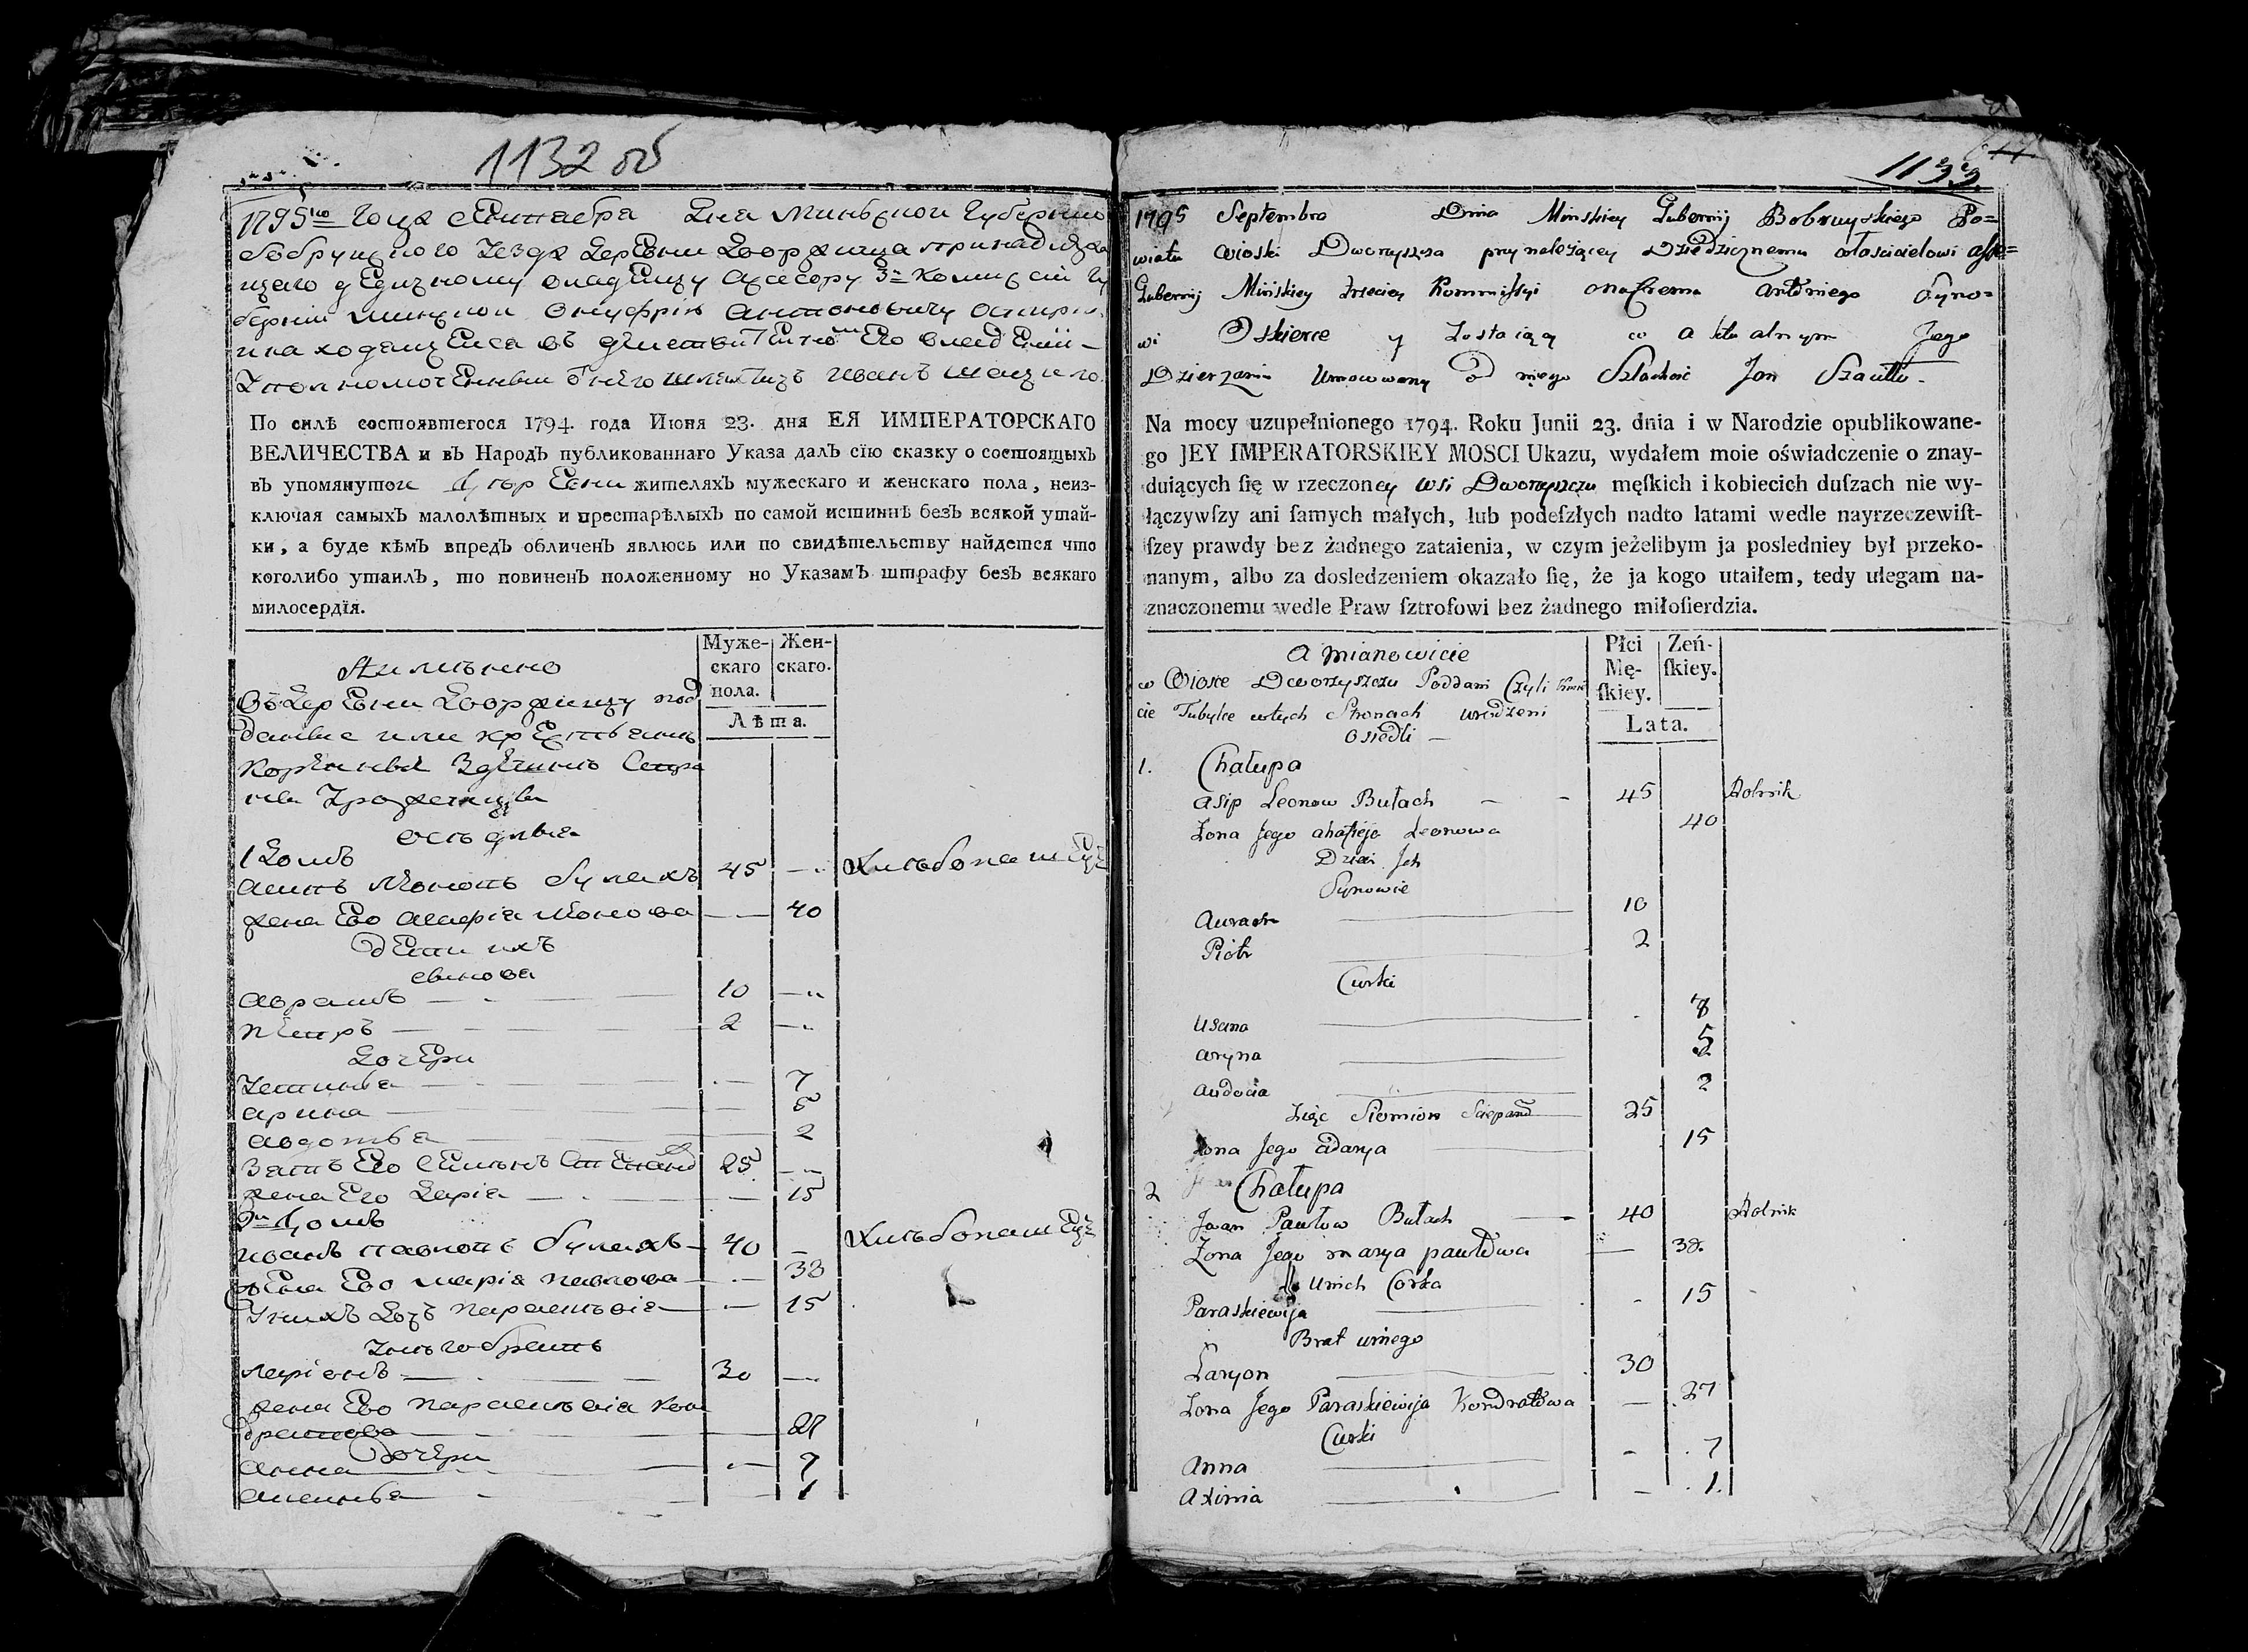 1132 об
1795го Года Сентебра Дна Минской Губернии
Бобруцкого Уезда Деревни Дворжища принадлежа
щего дедичному владельцу Асесору 3й Комиссии Гу
бернии Минской Онуфрию Антоновичу Оскирки
и находящейся въ действительномъ Его владении
Уполномоченный от него шляхтичь Иванъ
По силѣ состоявшегося 1794. года Июня 23. дня ЕЯ ИМПЕРАТОРСКАГО
ВЕЛИЧЕСТВА и въ Народъ публикованнаго Указа далъ сїю сказку о состоящыхъ
въ упомянутои деревни жителяхъ мужескаго и женскаго пола, неиз-
ключая самыхъ малолѣтныхъ и престарѣлыхъ по самой истиннѣ безъ всякой утай-
ки, а буде кѣмъ впредъ обличенъ явлюсь или по свидѣтельству найдется что
коголибо утаилъ, то повиненъ положенному по Указамъ штрафу безъ всякаго
милосердїя.
Муже- Жен-
скаго скаго.
пола.
Лѣта.
А имѣнно
Въ Деревни Дворжищу под
данные или крестьянне
коренные Здешнихъ Сторо
нъ Урожденцы
оседлые
1 Домъ
Асипъ Леоновъ Булахъ 45 — Хлебопашець
жена Его Агафiя Леонова — 40
дети ихъ
сынова
Аврамъ — 10 —
Петръ — 2 —
Дочери
Устинья — 7
Арина — 5
Авдотья — 2
Зять Его Семіонъ Степановъ 25 —
жена Его Дарiя — 15
2й Домъ
Иванъ Павловъ Булахъ — 40 — Хлебопашець
жена Его Марiя Павлова — 38
У нихъ Дочь Параскевiя — 15
У него братъ
Ларiонъ — 30 —
жена Его Параскевiя Кон
дратова — 27
Дочери
Анна — 7
Аксинья — 1
1133
1795 Septembra Dnia Minskiey Gubernij Bobruyskiego Po=
wiatu Wioski Dworzyszcza przynależącey Dziedzicznemu włascicielowi asse=
Gubernij Mińskiey trzeciey Kommissyi Onufremu Antoniego Syno=
wi Oskierce y Zostaiąą w aktualnym Jego
Dzierżaniu Umocowany od niego Szlachcic Jan Szawiłło.
Na mocy uzupełnionego 1794. Roku Junii 23. dnia i w Narodzie opublikowane-
go JEY IMPERATORSKIEY MOSCI Ukazu, wydałem moie oświadczenie o znay-
duiących ſię w rzeczoney wsi Dworzyszczu męſkich i kobiecich duſzach nie wy-
łączywſzy ani ſamych małych, lub podeſzłych nadto latami wedle nayrzeczewiſt-
ſzey prawdy bez żadnego zataienia, w czym jeżelibym ja posledniey był przeko-
nanym, albo za dosledzeniem okazało ſię, że ja kogo utaiłem, tedy ulegam na-
znaczonemu wedle Praw ſztrofowi bez żadnego miłoſierdzia.
Płci Zeń-
Mę- ſkiey.
ſkiey.
Lata.
A mianowicie
w Wiosce Dworzyszczu Poddani Czyli Kmie
cie Tubylce w tych Stronach urodzeni
osiedli —
1. Chałupa
Asip Leonow Bułach — 45 Rolnik
Zona Jego Ahafieja Leonowa 40
Dzieci Ich
Synowie
Awram 10
Piotr 2
Curki
Usana 8
Aryna 5
Audocia 2
Zięć Siemion Sciepand 25
Zona Jego Adarya 15
2 Chałupa
Jwan Pawłow Bułach — 40 Rolnik
Zona Jego Marya Pawłowa — 38.
U nich Corka
Paraskiewija - 15
Brat u niego
Łaryon 30
Zona Jego Paraskiewija Kondratowa — 27
Curki
Anna - 7
Axinia - 1.